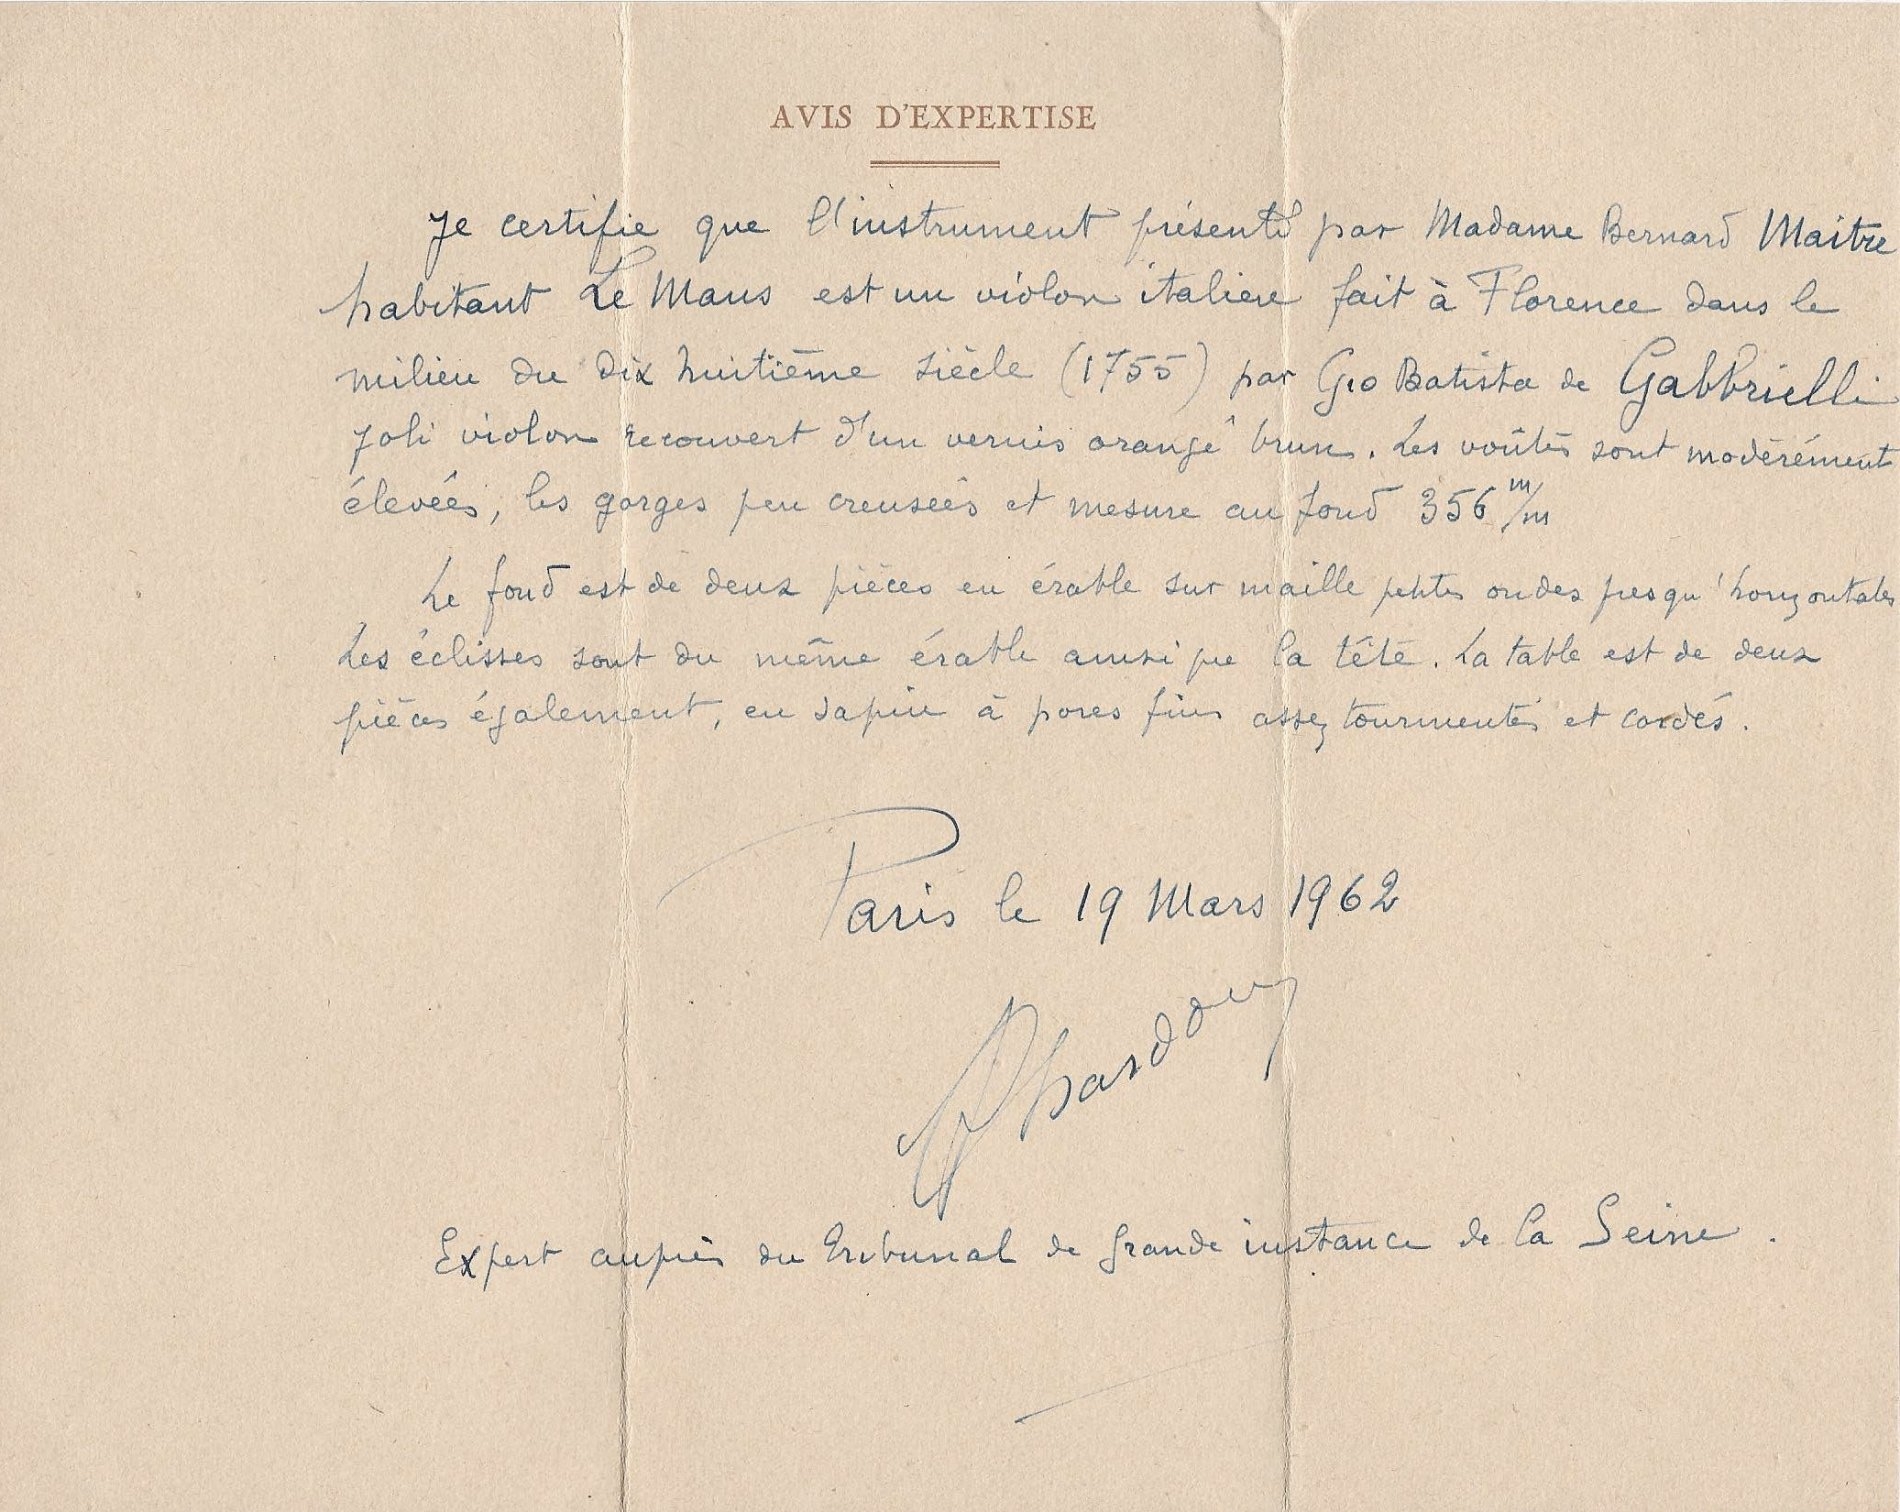 AVIS D'EXPERTISE
Je certifie que l'instrument présenté par Madame Bernard Maitre
habitant Le Mans est un violon italien fait à Florence dans le
milieu du dix huitième siècle (1755) par Gio Batista de Gabbrielli
Joli violon recouvert d'un vernis orangé brun. Les voûtes sont modérément
élevées, les gorges peu creusées et mesure au fond 356 m/m
Le fond est de deux pièces en érable sur maille petites ondes presqu'horizontales
Les éclisses sont du même érable ainsi que la tête. La table est de deux
pièces également, en sapin à pores fins assez tourmentés et cordés.
Paris le 19 Mars 1962
Expert auprès du Tribunal de grande instance de la Seine.